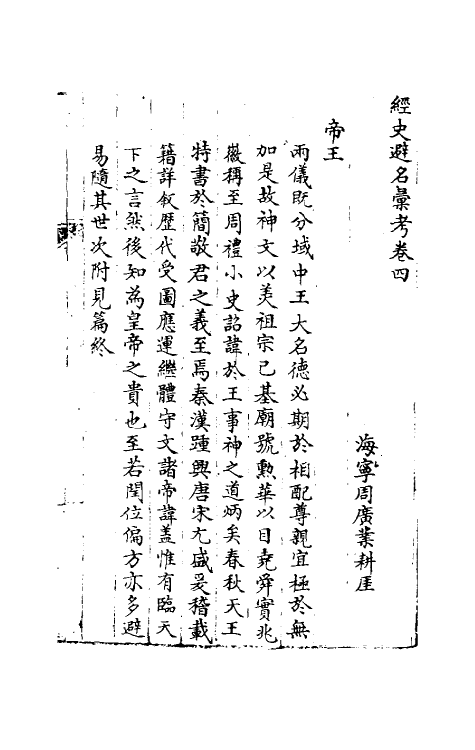 經史避名彙考卷四
海寧周廣業耕厓
帝王
兩儀既分域中王大名德必期於相配尊親宜極於無
加是故神文以美祖宗已基廟號勲華以目堯舜實兆
徽稱至周禮小史詔諱於王事神之道炳矣春秋天王
特書於簡敬君之義至焉秦漢踵興唐宋尤盛爰稽載
籍詳叙歷代受圖應運繼體守文諸帝諱盖惟有臨天
下之言然後知為皇帝之貴也至若閏位偏方亦多避
易隨其世次附見篇終